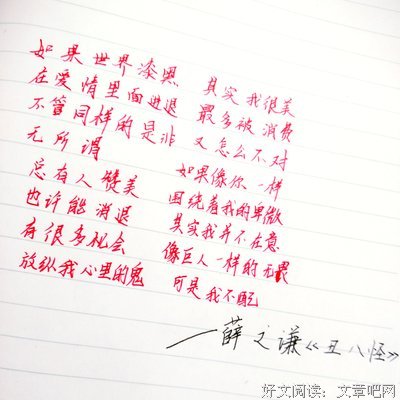 如果世界漆黑 其实我很美
在爱情里面进退 最多被消费
不管同样的是非 又怎么不对
无所谓
如果像你一样
总有人赞美
围绕着我的卑微
也许能消退
其实我并不在意
有很多机会
像巨人一样的无畏
放纵我心里的鬼
可是我不配
一薛之谦《丑八怪》
好文阅读：文章吧网